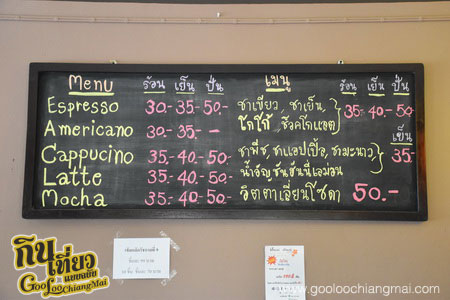 Menu ร้อน เย็น ปั่น
Espresso 30.- 35.- 50.-
Americano 30.- 35.- -
Cappucino 35.- 40.- 50.-
Latte 35.- 40.- 50.-
Mocha 35.- 40.- 50.-
เมนู ร้อน เย็น ปั่น
ชาเขียว, ชาเย็น, 35.- 40.- 50.-
โกโก้, ช็อคโกแลต
เย็น
ชาพีช, ชาแอปเปิ้ล, ชามะนาว, 35.-
น้ำอัญชันฮันนี่เลมอน
อิตตาเลี่ยนโซดา 50.-
กินเที่ยว
แบบฉบับ
GooLooChiangMai
www.gooloochiangmai.com